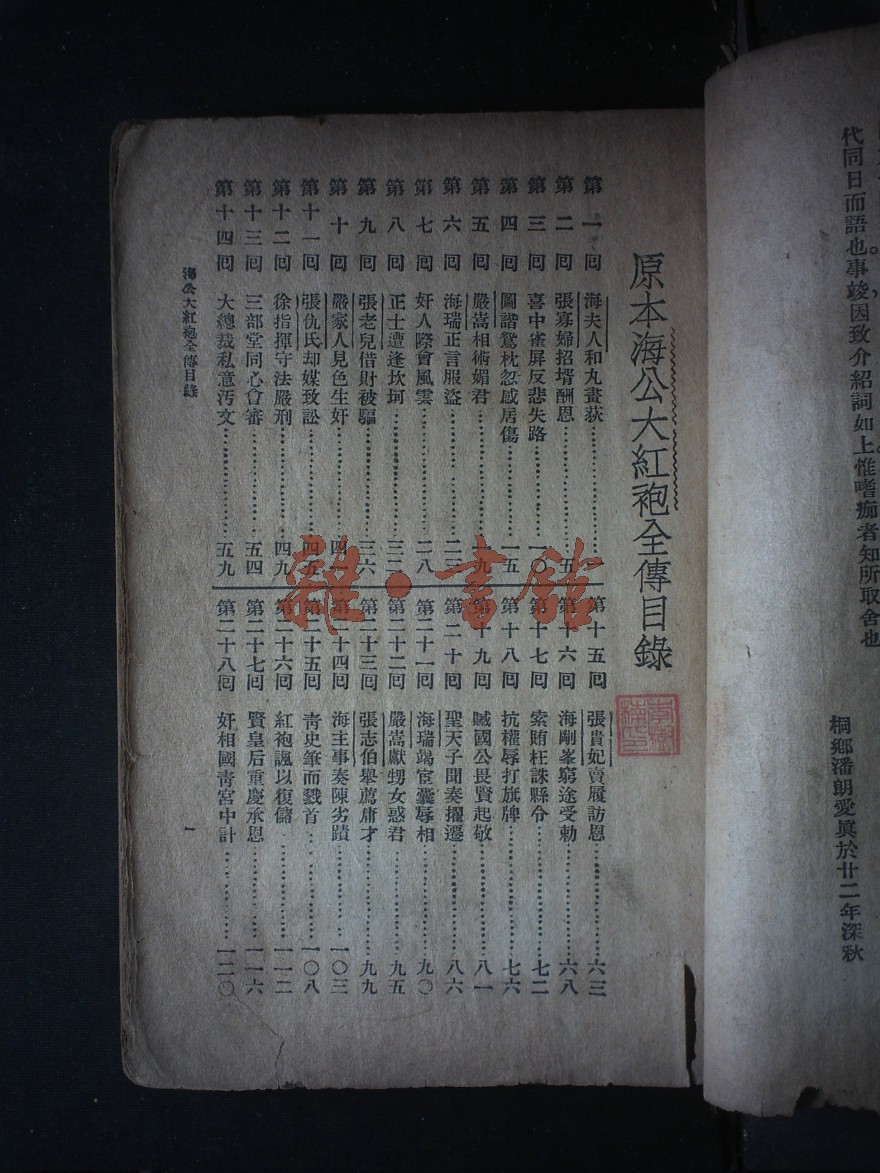 代同日而語也。事竣因致介紹詞如上。惟嗜痂者知所取舍也
桐鄉潘朗愛眞於廿二年深秋
原本海公大紅袍全傳目錄
第一回 海夫人和丸畫荻
第二回 張寡婦招壻酬恩 五
第三回 喜中雀屏反悲失路 一〇
第四回 圖諧鴛枕忽感居傷 一五
第五回 嚴嵩相術媚君 一九
第六回 海瑞正言服盜 二三
第七回 奸人際會風雲 二八
第八回 正士遭逢坎坷 三二
第九回 張老兒借財被騙 三六
第十回 嚴家人見色生奸 四一
第十一回 張仇氏却媒致訟 四五
第十二回 徐指揮守法嚴刑 四九
第十三回 三部堂同心會審 五四
第十四回 大總裁私意汚文 五九
第十五回 張貴妃賣履訪恩 六三
第十六回 海剛峯窮途受勅 六八
第十七回 索賄枉誅縣令 七二
第十八回 抗權辱打旗牌 七六
第十九回 贓國公畏賢起敬 八一
第二十回 聖天子聞奏擢遷 八六
第二十一回 海瑞竭宦囊辱相 九〇
第二十二回 嚴嵩獻甥女惑君 九五
第二十三回 張志伯舉薦庸才 九九
第二十四回 海主事奏陳劣蹟 一〇三
第二十五回 靑史筆而戮首 一〇八
第二十六回 紅袍諷以復儲 一一二
第二十七回 賢皇后重慶承恩 一一六
第二十八回 奸相國靑宮中計 一二〇
海公大紅袍全傳目錄
一
雜·書館